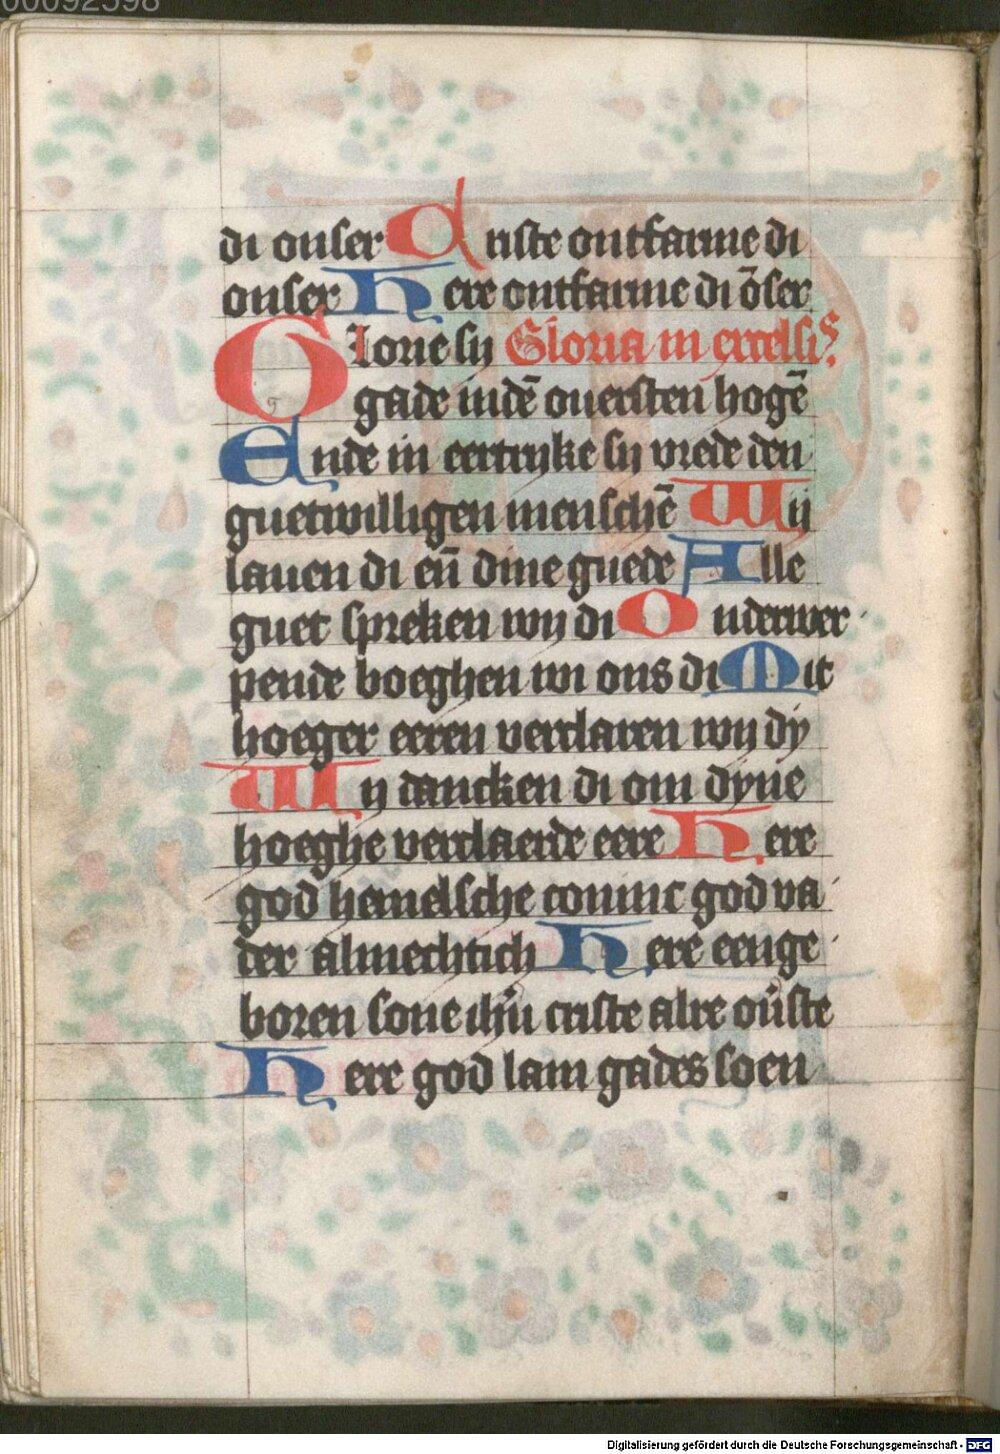 00092598
di onser Criste ontfarme di
onser Here ontfarme di ōser
Glorie sy Gloria in excelsis
gade indē ouersten hogē
Ende in eertrijke sij vrede den
guetwilligen menschē Wij
lauen di eñ dine guede Alle
guet spreken wij di Onderwer
pende boeghen wi ons di Mit
hoeger eeren verclaren wij dÿ
Wij dancken di om dyne
hoeghe verclaerde eere Here
god hemelsche coninc god va
der almechtich Here eenge
boren sone ihū criste alre oūste
Here god lam gades soen
Digitalisierung gefördert durch die Deutsche Forschungsgemeinschaft - DFG